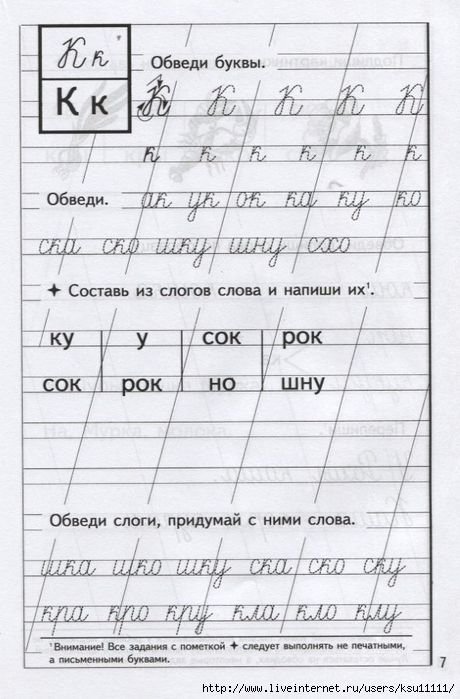 К к
К к
Обведи буквы.
К К К К К
к к к к к к
Обведи.
ак ук ок ка ку ко
ска ско шку шну
✦ Составь из слогов слова и напиши их¹.
ку у сок рок
сок рок но шну
Обведи слоги, придумай с ними слова.
шка шко шку ска ско ску
кра кро кру кла кло клу
¹Внимание! Все задания с пометкой ✦ следует выполнять не печатными,
а письменными буквами.
7
http://www.liveinternet.ru/users/ksu11111/